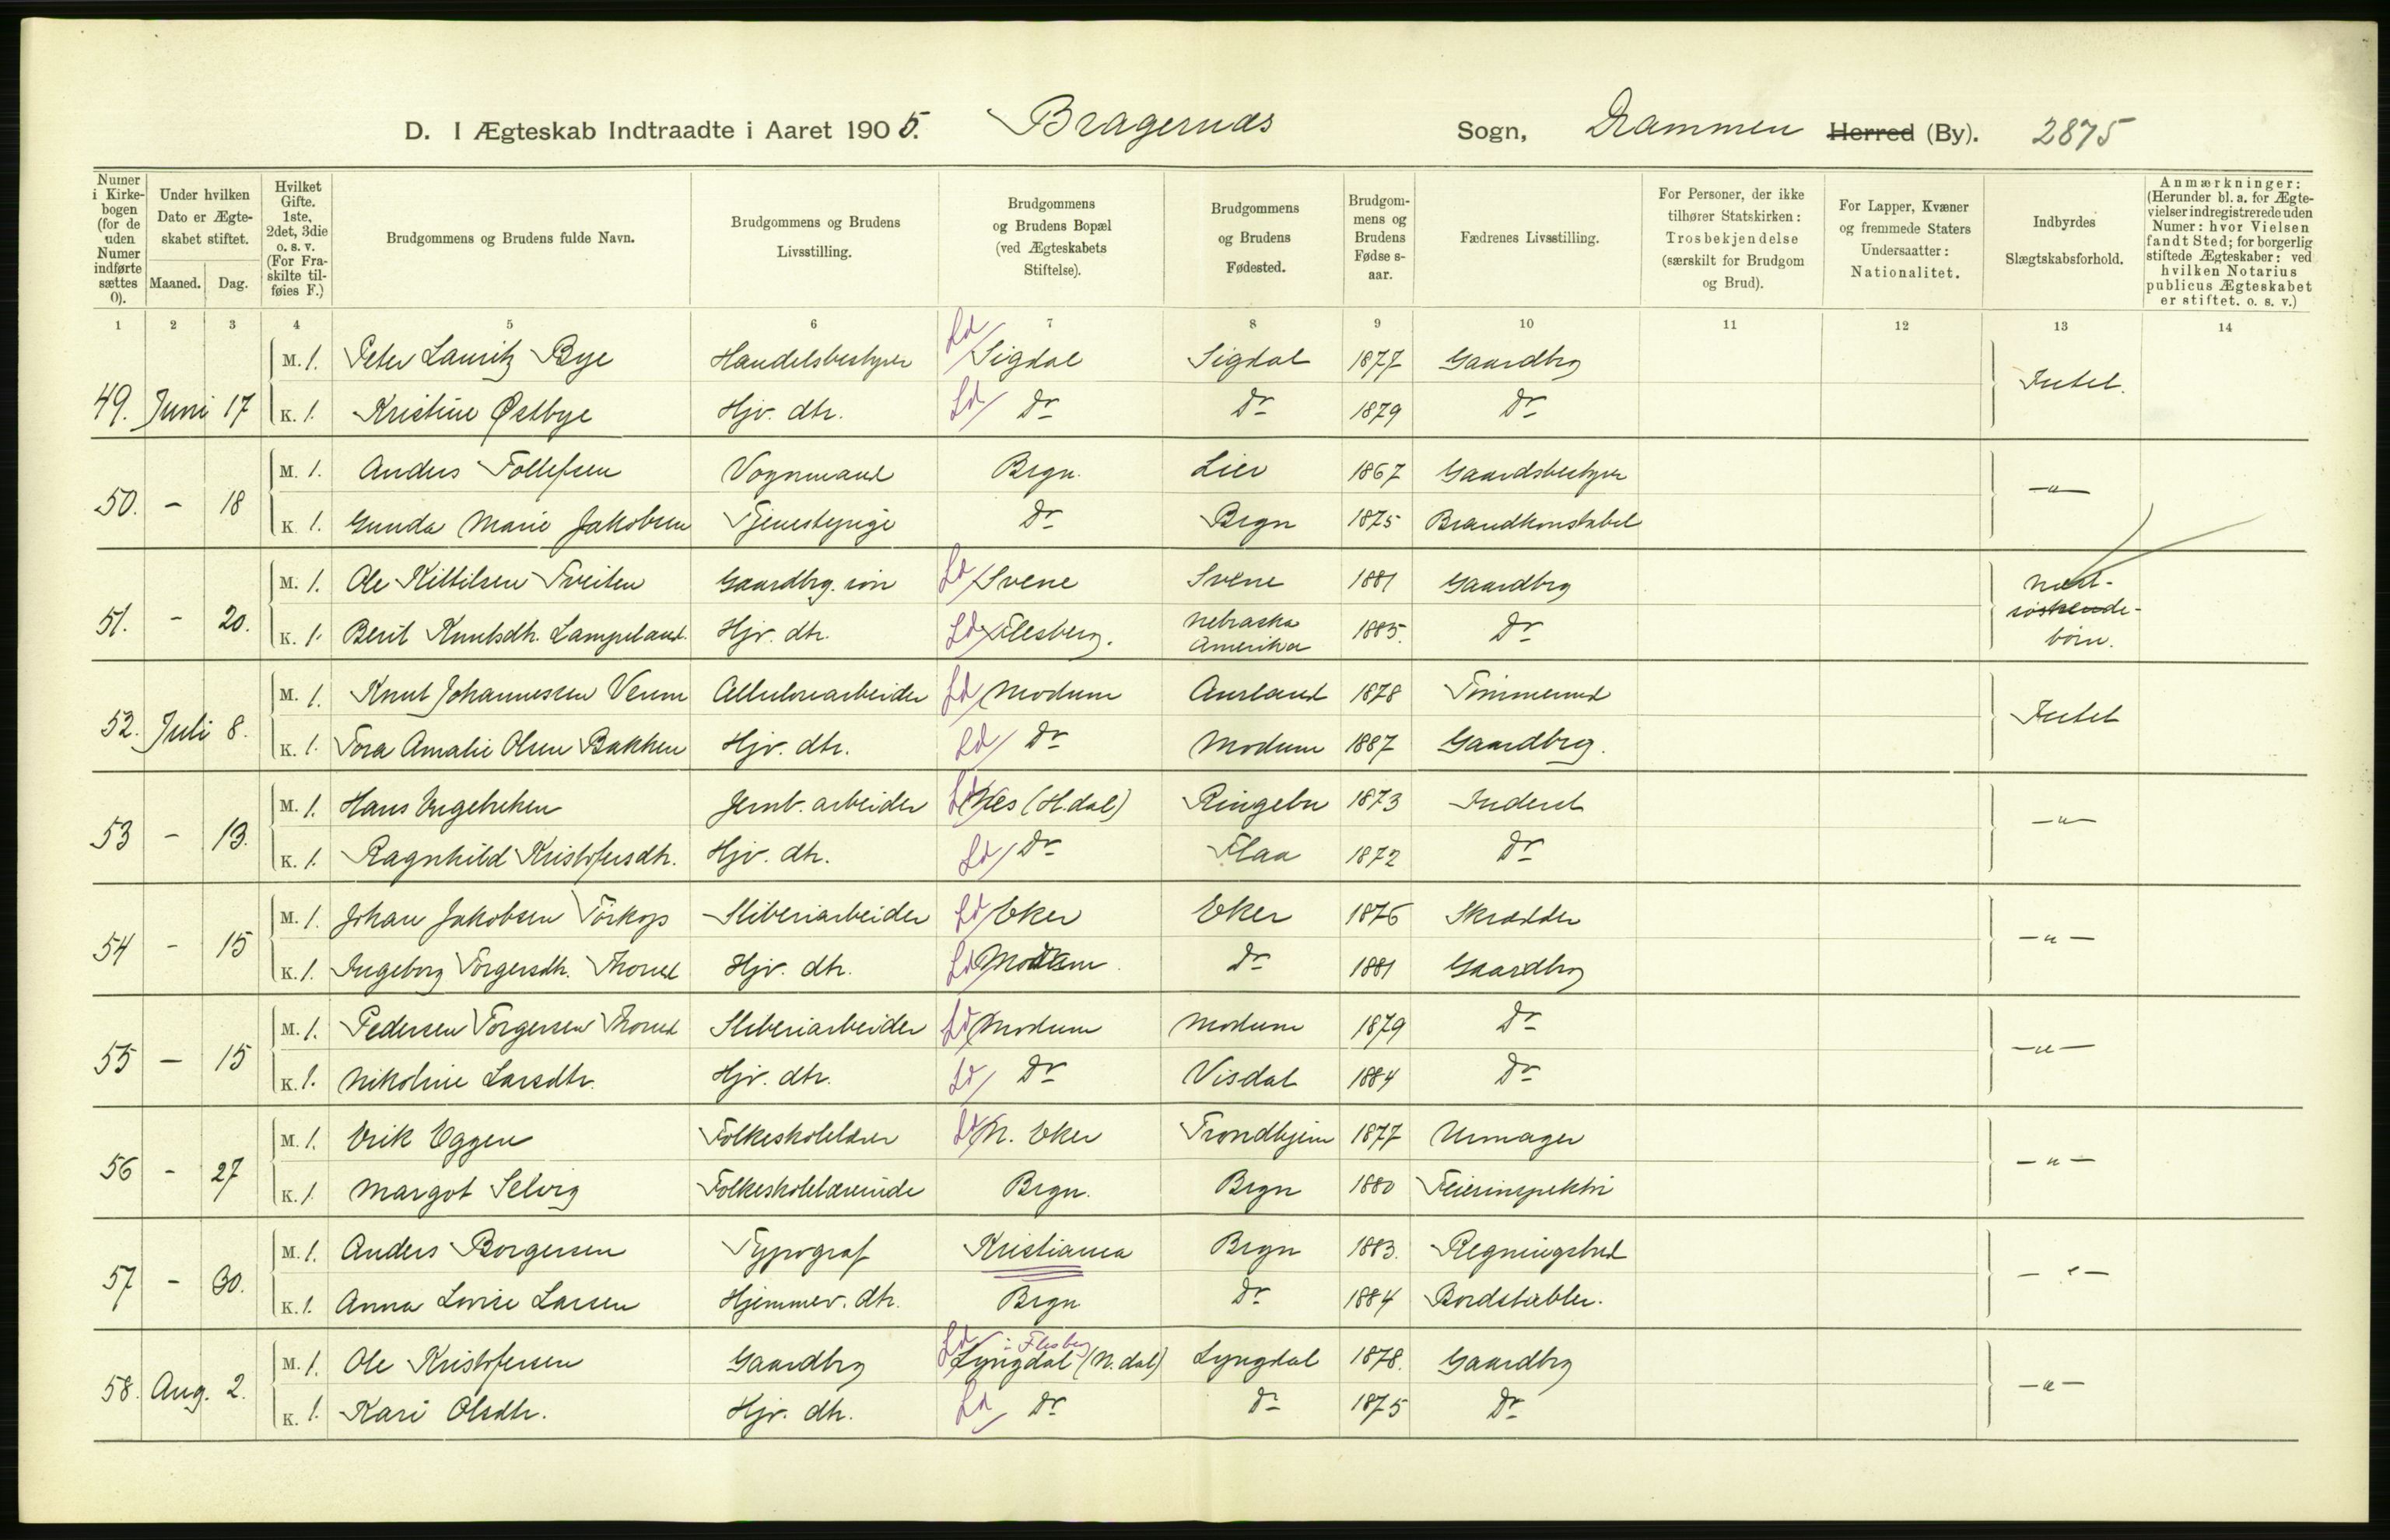 D. I Ægteskab Indtraadte i Aaret 1905. Bragernæs Sogn, Drammen Herred (By). 2875
Numer i Kirkebogen (for de uden Numer indførte sættes 0). Under hvilken Dato er Ægteskabet stiftet. Maaned. Dag. Hvilket Gifte. 1ste, 2det, 3die o. s. v. (For Fraskilte tilføies F.) Brudgommens og Brudens fulde Navn. Brudgommens og Brudens Livsstilling. Brudgommens og Brudens Bopæl (ved Ægteskabets Stiftelse). Brudgommens og Brudens Fødested. Brudgommens og Brudens Fødse s-aar. Fædrenes Livsstilling. For Personer, der ikke tilhører Statskirken: Trosbekjendelse (særskilt for Brudgom og Brud). For Lapper, Kvæner og fremmede Staters Undersaatter: Nationalitet. Indbyrdes Slægtskabsforhold. Anmærkninger: (Herunder bl. a. for Ægtevielser indregistrerede uden Numer: hvor Vielsen fandt Sted; for borgerlig stiftede Ægteskaber: ved hvilken Notarius publicus Ægteskabet er stiftet. o. s. v.)
1 2 3 4 5 6 7 8 9 10 11 12 13 14
M. 1. Peter Lauritz Bye Handelsbestyrer Ld Sigdal Sigdal 1877 Gaardbrg Intet.
49. Juni 17 K. 1. Kristine Østbye Hjv. dtr. Ld Do Do 1879 Do
M. 1. Anders Tollefsen Vognmand Brgn. Lier 1867 Gaardsbestyrer —"—
50. - 18 K 1. Gunda Marie Jakobsen Tjenestepige Do Brgn 1875 Brandkonstabel
M. 1. Ole Kittilsen Tveiten Gaardbrg. søn Ld Svene Svene 1881 Gaardbrg Næst-søskende-børn.
51. - 20. K. 1. Berit Knutsdtr. Lampeland. Hjv. dtr. Ld Flesberg. Nebraska Amerika 1885. Do
M. 1. Knut Johannessen Venm Cellulosearbeider Ld Modum Aurland 1878 Tømmermd Intet
52. Juli 8. K. 1. Tora Amalie Olsen Bakken Hjv. dtr. Ld Do Modum 1887 Gaardbrg.
M. 1. Hans Engebretsen Jernb. arbeider Ld Nes (H.dal) Ringebu 1873 Inderst —"—
53 - 13. K. 1. Ragnhild Kristofersdtr. Hjv. dtr. Ld Do Flaa 1872 Do
M. 1. Johan Jakobsen Torkop Sliberiarbeider Ld Eker Eker 1876 Skrædder —"—
54 - 15 K. 1. Ingeborg Torgersdtr. Thorud Hjv. dtr. Ld Modum Do 1881 Gaardbrg
M. 1. Pedersen Torgersen Thorud Sliberiarbeider Ld Modum Modum 1879 Do —"—
55 — 15 K. 1. Nikoline Larsdtr. Hjv. dtr. Ld Do Visdal 1884 Do
M. 1. Erik Eggen Folkeskolelærer Ld N. Eker Trondhjem 1877 Urmager —"—
56 - 27 K. 1. Margot Selvig Folkeskolelærerinde Brgn. Brgn 1880 Feierinspektør
M. 1. Anders Borgersen Typograf Kristiania Brgn 1883. Regningsbud —"—
57 - 30. K. 1. Anna Lovise Larsen Hjemmev. dtr. Brgn Do 1884 Bordstabler.
M. 1. Ole Kristofersen Gaardbrg Ld Lyngdal i Flesberg (N.dal) Lyngdal 1878. Gaardbrg —"—
58. Aug. 2. K. 1. Kari Olsdtr. Hjv. dtr. Ld Do Do 1875 Do